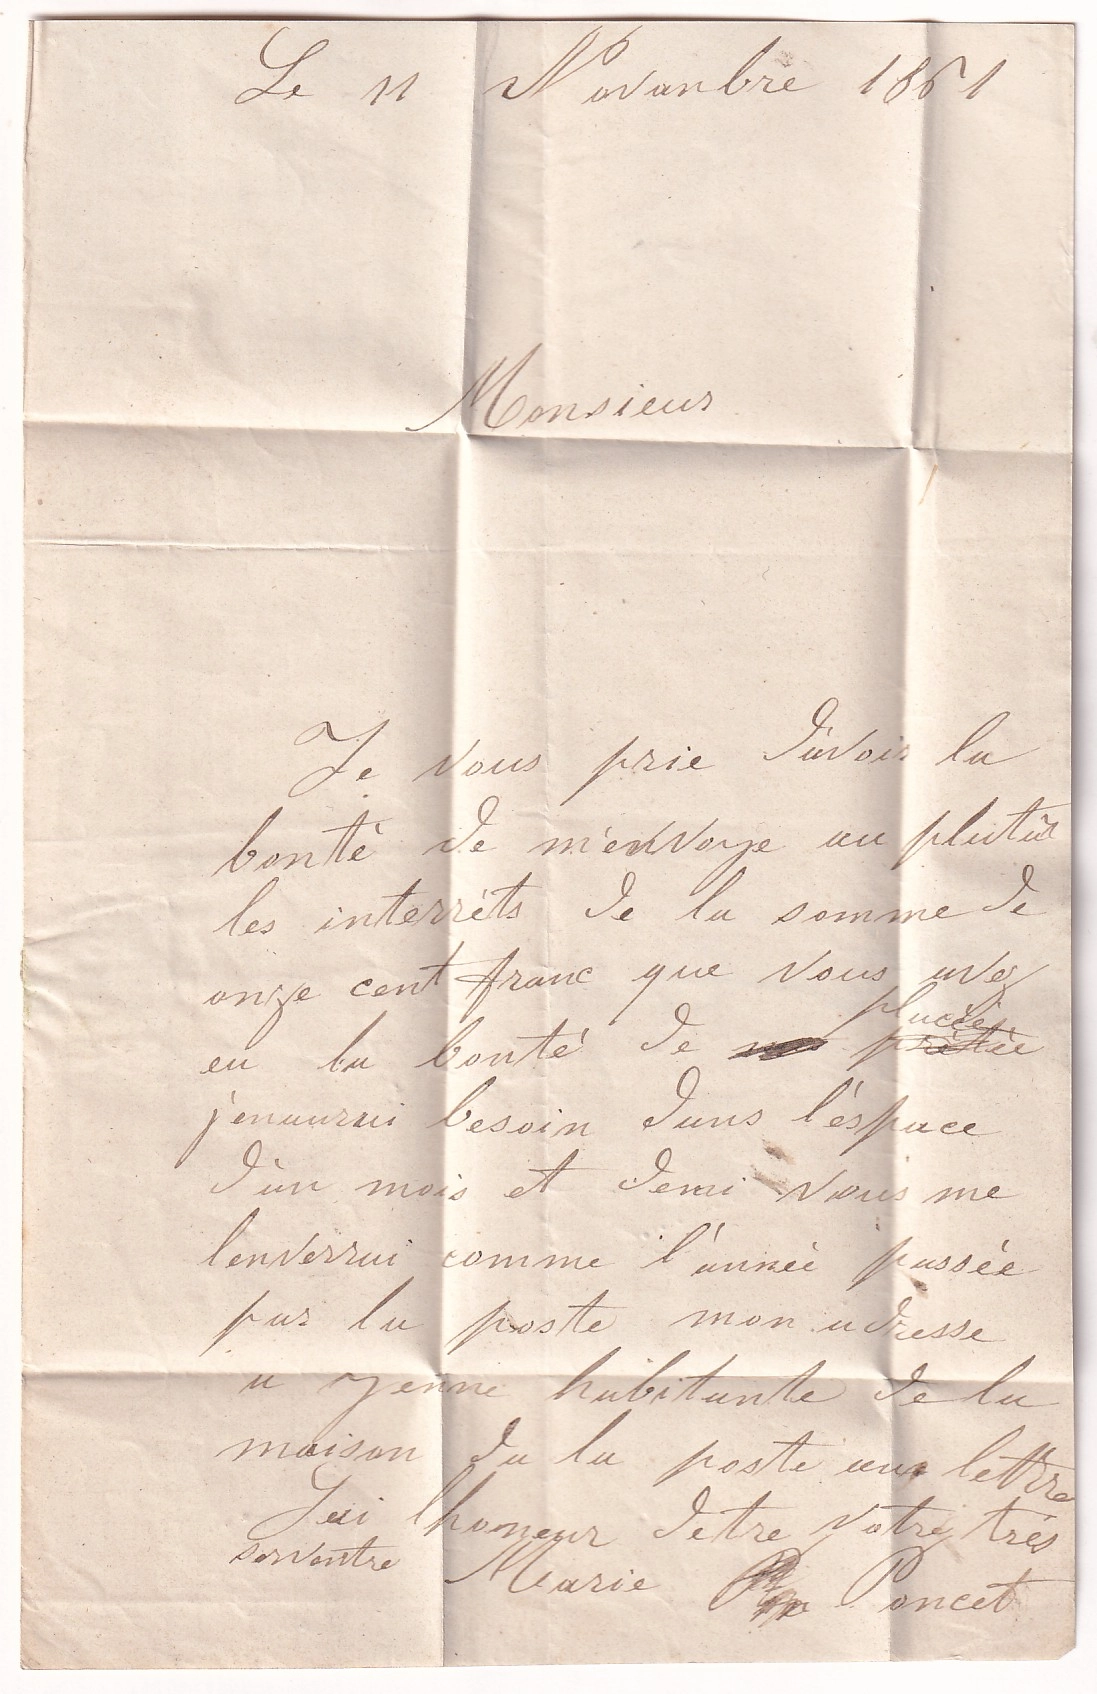 Le 11 Novanbre 1861
Monsieur
Je vous prie d'avoir la
bonté de m'envoye au plutôt
les interrêts de la somme de
onze cent franc que vous avez
placée
eu la bonté de prêtée
j'enaurai besoin dans l'éspace
d'un mois et demi vous me
lenverrai comme l'année passée
par la poste mon adresse
a yenne habitante de la
maison du la poste aux lettre
Jai lhoneur detre votre très
servantre Marie Poncet